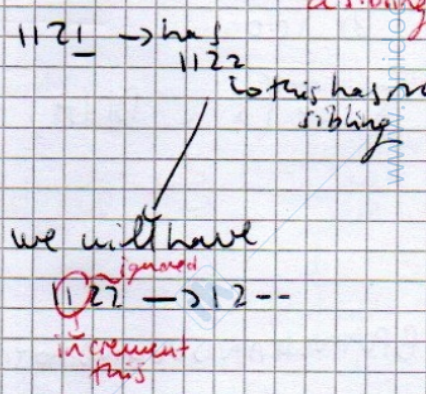 a sibling
1121 → has
1122
↳ this has no
sibling
we will have
ignored
1122 → 12--
increment
this